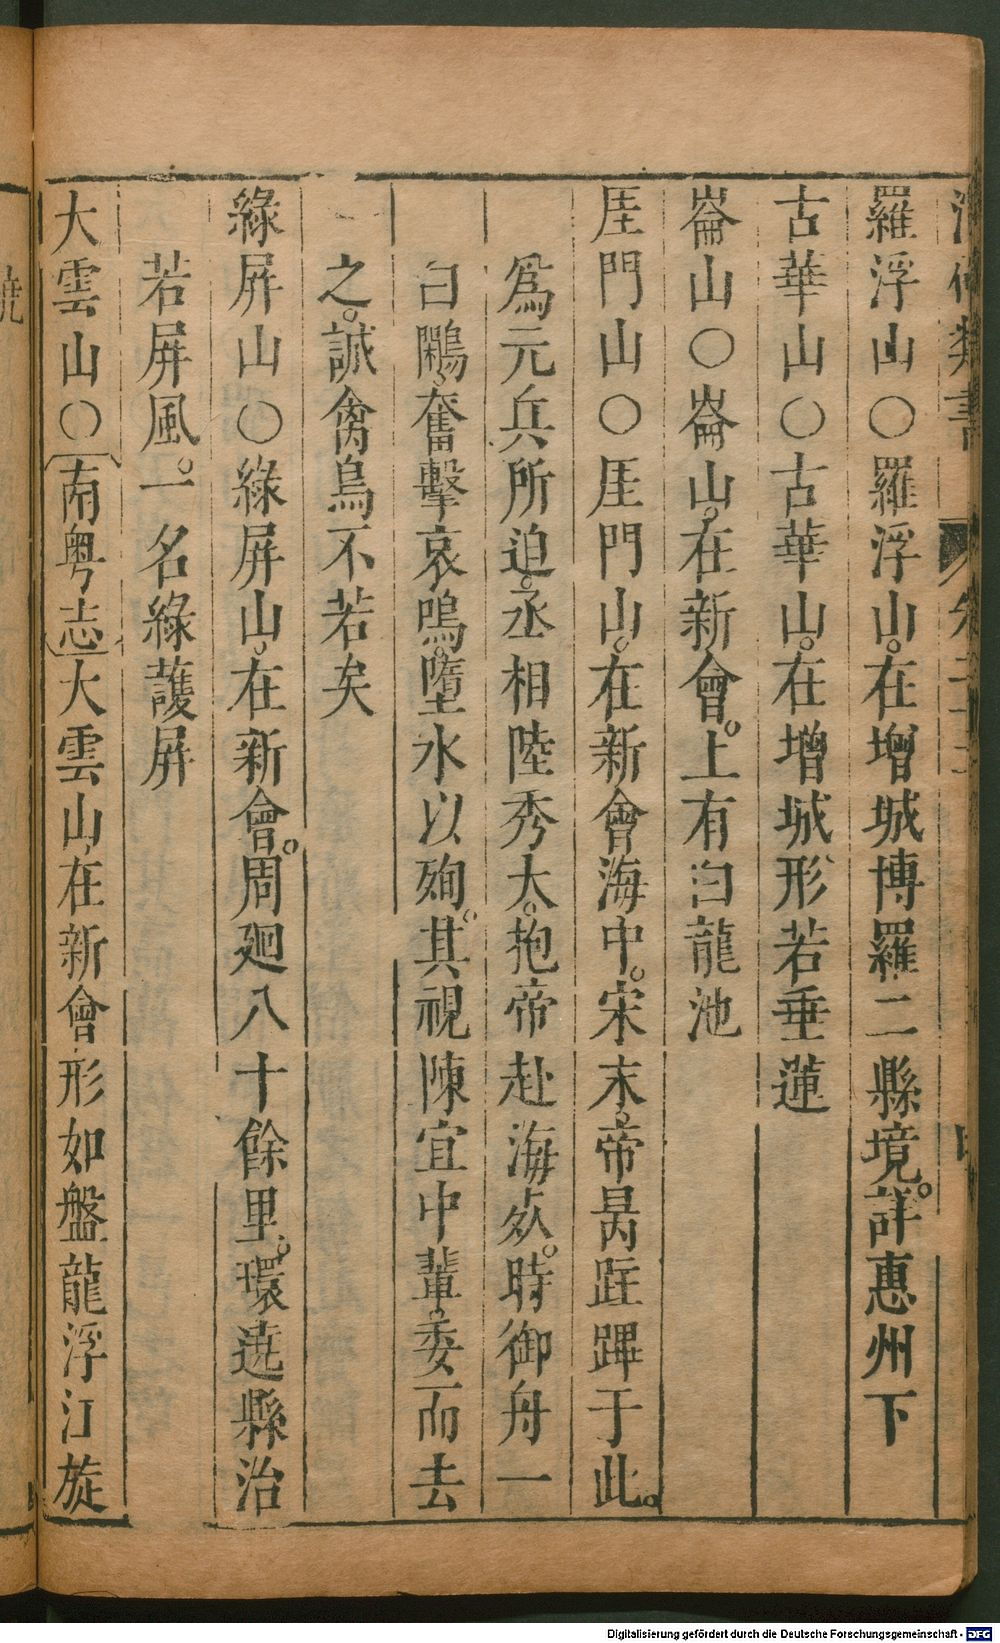 類書
羅浮山〇羅浮山。在增城博羅二縣境。詳惠州下
古華山〇古華山。在增城、形若垂蓮
崙山〇崙山。在新會。上有白龍池
厓門山〇厓門山。在新會海中。宋末。帝昺駐蹕于此。
爲元兵所迫。丞相陸秀夫。抱帝赴海死。時御舟一
白鷴、奮擊哀鳴。墮水以殉。其視陳宜中輩。委而去
之。誠禽鳥不若矣
綠屏山〇綠屏山、在新會。周廻八十餘里。環遶縣治
若屏風。一名綠護屏
大雲山〇南粤志大雲山、在新會、形如盤龍浮江旋
Digitalisierung gefördert durch die Deutsche Forschungsgemeinschaft - DFG